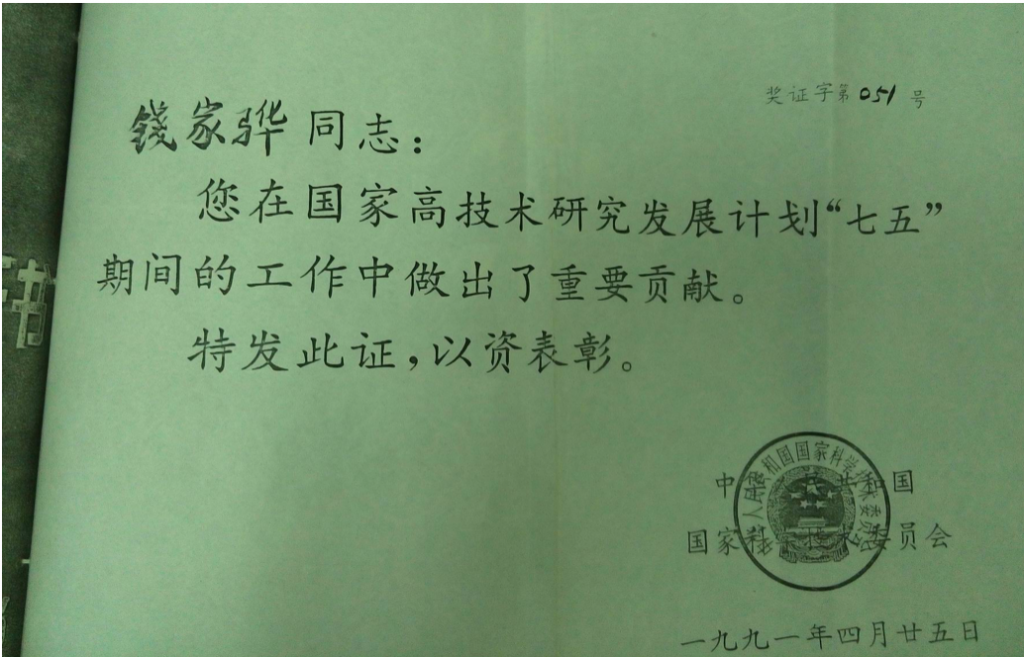 奖证字第051号
錢家骅同志：
您在国家高技术研究发展计划“七五”
期间的工作中做出了重要贡献。
特发此证，以资表彰。
中华人民共和国
国家科学技术委员会
中华人民共和国国家科学技术委员会
一九九一年四月廿五日